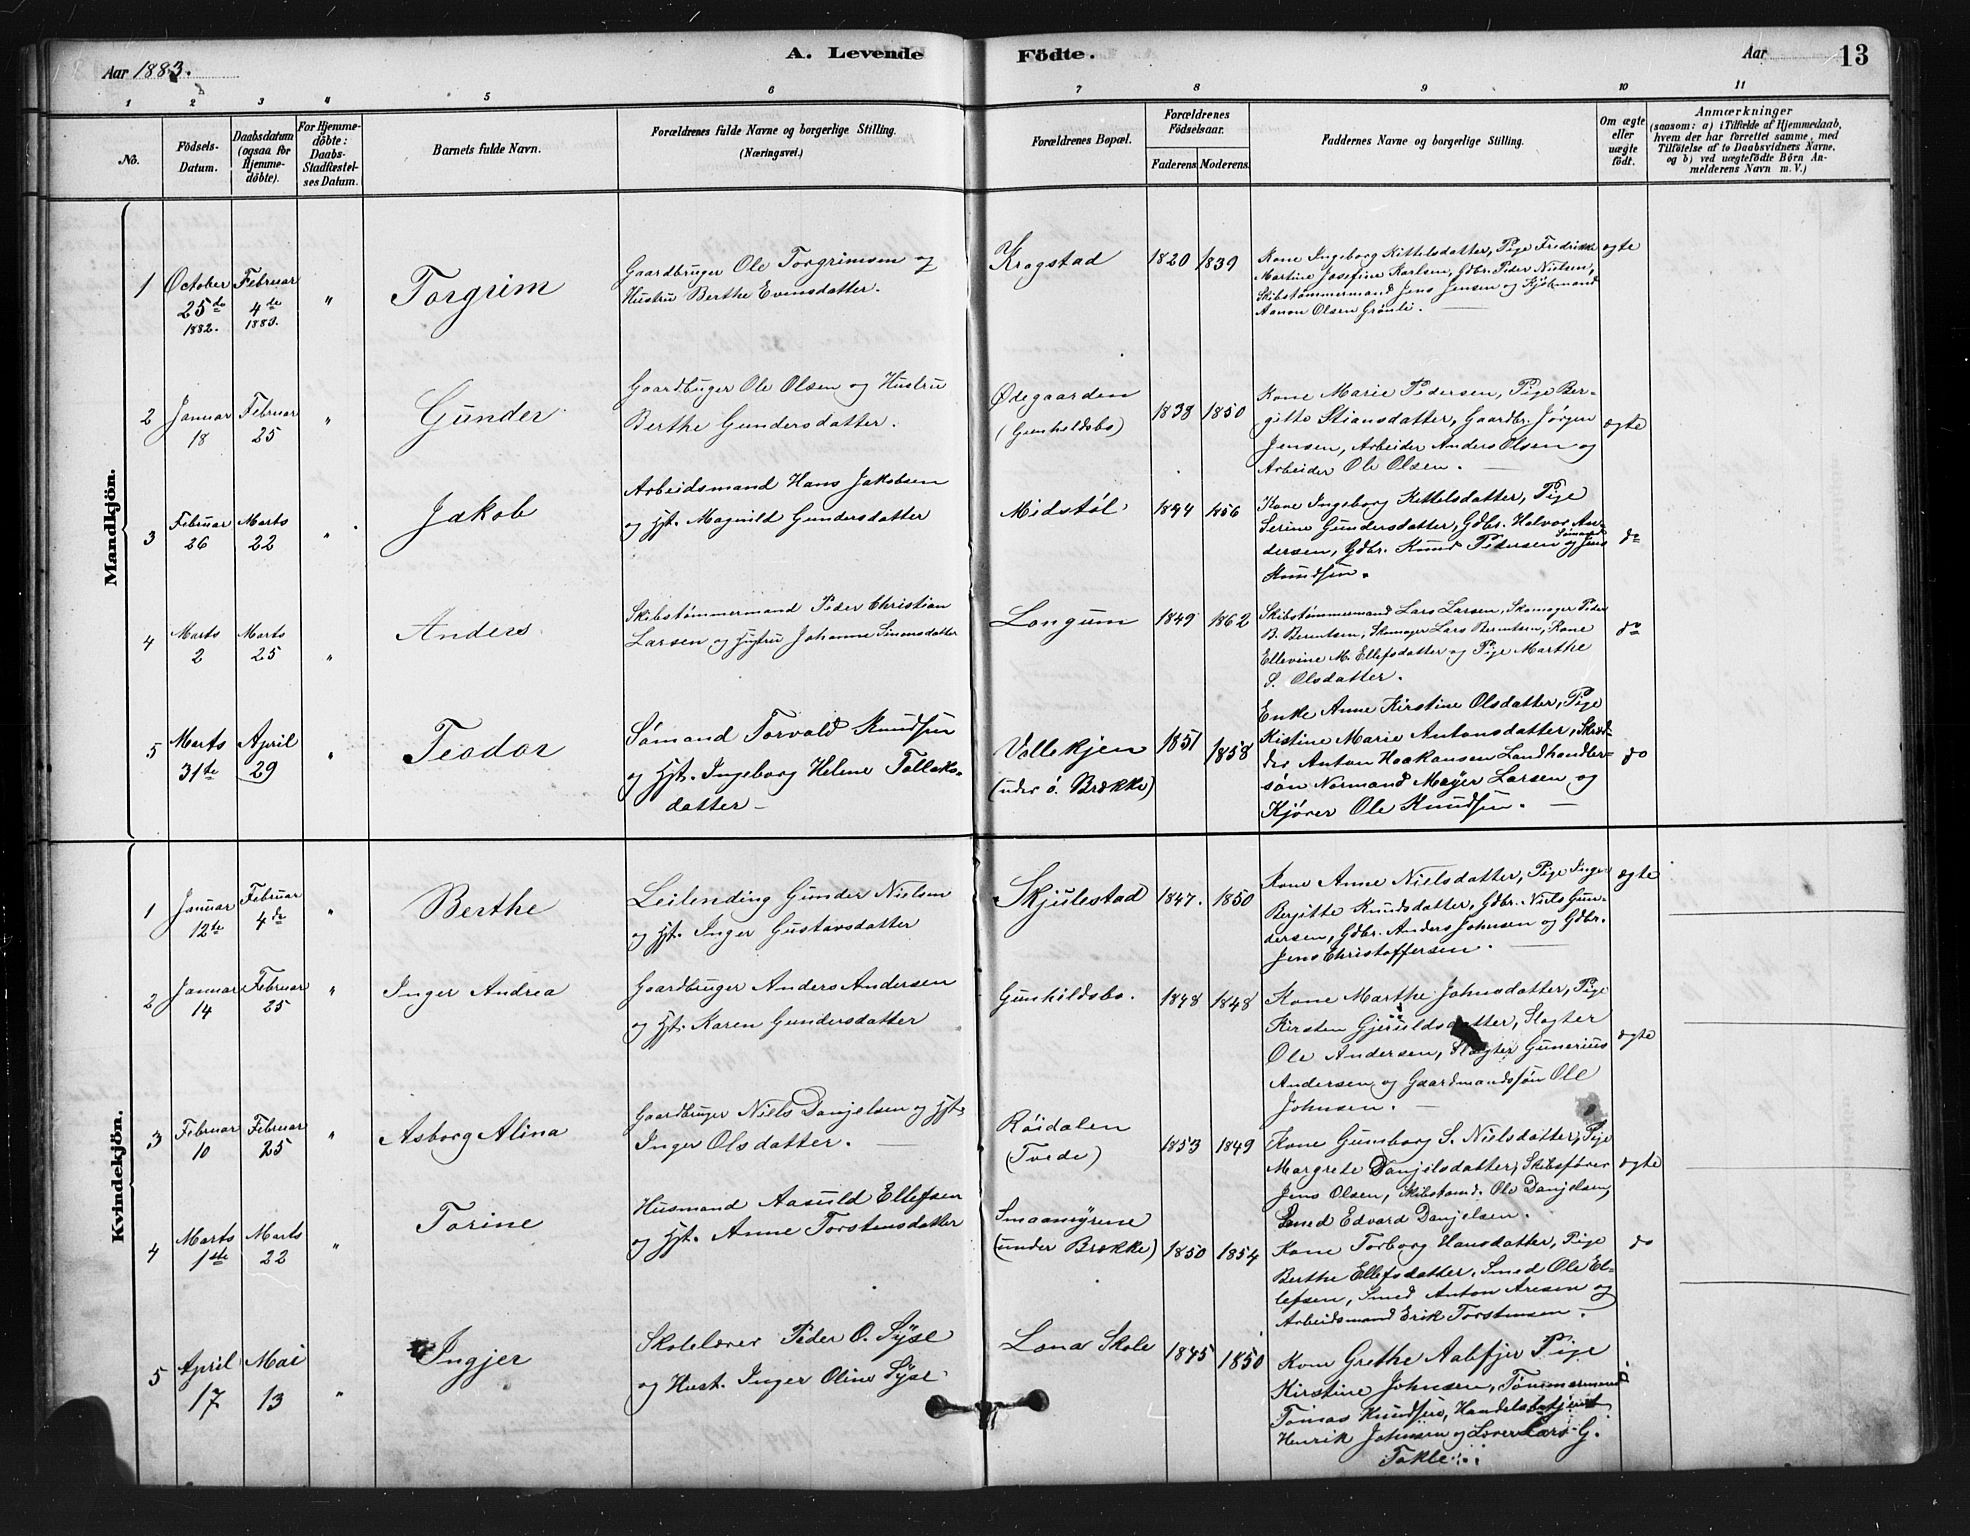 Aar 1883.
A. Levende
Födte.
Aar
13
1 2 3 4 5 6 7 8 9 10 11
No.
Födsels-
Datum.
Daabsdatum
(ogsaa for
Hjemme-
döbte).
For Hjemme-
döbte:
Daabs-
Stadfæstel-
ses Datum.
Barnets fulde Navn.
Forældrenes fulde Navne og borgerlige Stilling.
(Næringsvei.)
Forældrenes Bopæl.
Forældrenes
Födselsaar.
Faderens. Moderens.
Faddernes Navne og borgerlige Stilling.
Om ægte
eller
uægte
födt.
Anmærkninger
(saasom: a) i Tilfælde af Hjemmedaab,
hvem der har forrettet samme, med
Tilföielse af to Daabsvidners Navne,
og b) ved uægtefödte Börn An-
melderens Navn m. V.)
Mandkjön.
1
October
25de
1882.
Februar
4de
1883.
"
Torgrim
Gaardbruger Ole Torgrimsen og
Hustru Berthe Evensdatter.
Krogstad
1820
1839
Kone Ingeborg Kittelsdatter, Pige Fredrikke
Martine Josefine Karlsen, Gdbr. Peder Nielsen,
Skibstømmermand Jens Jensen og Kjøbmand
Aanon Olsen Grønli.
ægte
2
Januar
18
Februar
25
"
Gunder
Gaardbuger Ole Olsen og Hustru
Berthe Gundersdatter.
Ødegaarden
(Gunhildsbo)
1838
1850
Kone Marie Pedersen, Pige Ber-
gitte Stiansdatter, Gaardbr. Jørgen
Jensen, Arbeider Anders Olsen og
Arbeider Ole Olsen.
ægte
3
Februar
26
Marts
22
"
Jakob
Arbeidsmand Hans Jakobsen
og Hst. Magnild Gundersdatter
Midstøl
1844
1856
Kone Ingeborg Kittelsdatter, Pige
Serine Gundersdatter, Gdbr. Halvor An-
dersen, Gdbr. Knud Pedersen og Sømand Jens
Knudsen.
do
4
Marts
2
Marts
25
"
Anders
Skibstømmermand Peder Christian
Larsen og Hustru Johanne Simonsdatter
Longum
1849
1862
Skibstømmermand Lars Larsen, Skomager Peder
B. Berentsen, Skomager Lars Berentsen, Kone
Ellevine M. Ellefsdatter og Pige Marthe
S. Olsdatter.
do
5
Marts
31te
April
29
"
Teodor
Sømand Torvald Knudsen
og Hst. Ingeborg Helene Tallaks-
datter
Vallekjen
(under ö. Brække)
1851
1858
Enke Anne Kirstine Olsdatter, Pige
Kistine Marie Antonsdatter, Skræd-
der Anton Haakansen Landhandler-
søn Normand Mayer Larsen og
Kjører Ole Knudsen.
do
Kvindekjön.
1
Januar
12te
Februar
4de
"
Berthe
Leilending Gunder Nielsen
og Hst. Inger Gustavsdatter
Skjulestad
1847.
1850
Kone Anne Nielsdatter, Pige Inger
Bergitte Knudsdatter, Gdbr. Niels Gun-
dersen, Gdbr. Anders Johnsen og Gdbr.
Jens Christoffersen.
ægte
2
Januar
14
Februar
25
"
Inger Andrea
Gaardbruger Anders Andersen
og Hst. Karen Gundersdatter
Gunhildsbo.
1848
1848
Kone Marthe Johnsdatter, Pige
Kirsten Gjeruldsdatter, Slagter
Ole Andersen, Slagter Gunerius
Andersen og Gaardmandssøn Ole
Johnsen.
ægte
3
Februar
10
Februar
25
"
Asborg Alina
Gaardbruger Niels Danjelsen og Hst.
Inger Olsdatter.
Røisdalen
(Tvede)
1853
1849
Kone Gunborg S. Nielsdatter, Pige
Margrete Danjelsdatter, Skibsfører
Jens Olsen, Skibstømd. Ole Danjelsen,
Smed Edvard Danjelsen.
ægte
4
Marts
1ste
Marts
22
"
Torine
Husmand Aasuld Ellefsen
og Hst. Anne Torstensdatter
Smaamyrene
(under Brække)
1850
1854
Kone Torborg Hansdatter, Pige
Berthe Ellefsdatter, Smed Ole El-
lefsen, Smed Anton Aresen og
Arbeidsmand Erik Torstensen.
do
5
April
17
Mai
13
"
Ingjer
Skolelærer Peder O. Syse
og Hust. Inger Oline Syse
Lona Skole
1845
1850
Kone Grethe Aabesjer Pige
Kirstine Johnsen, Tømmermand
Tomas Knudsen, Handelsbetjent
Henrik Johnsen og Lærer Lars G.
Takle